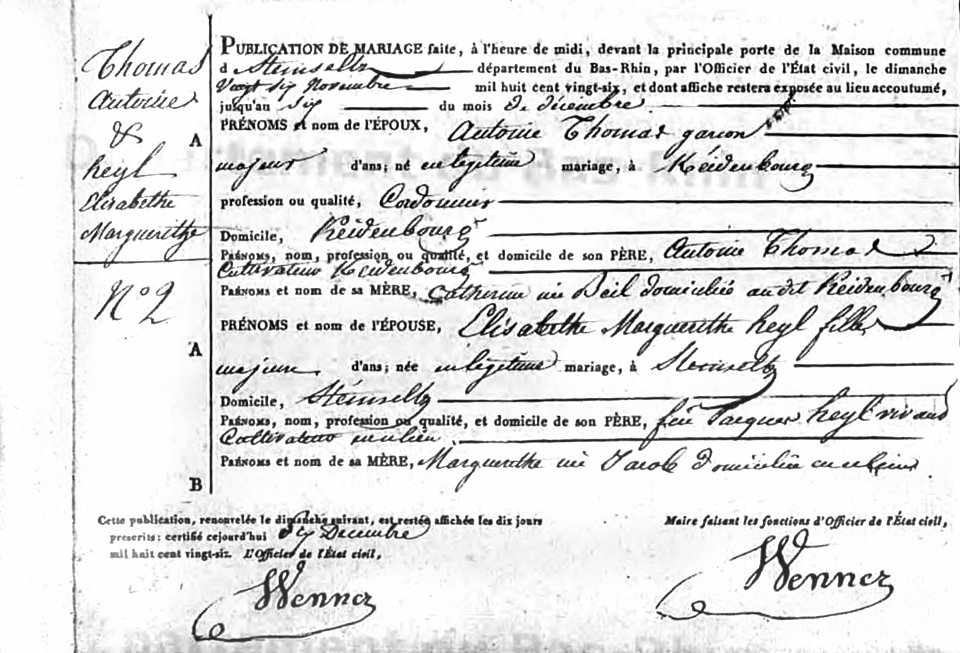 Thomas
Antoine
&
heyl
Elisabethe
Marguerithe
N° 2
A
A
B
PUBLICATION DE MARIAGE faite, à l'heure de midi, devant la principale porte de la Maison commune
d Steinseltz département du Bas-Rhin, par l'Officier de l'État civil, le dimanche
Vingt six Novembre mil huit cent vingt-six, et dont affiche restera exposée au lieu accoutumé,
jusqu'au six du mois de décembre
PRÉNOMS et nom de l'ÉPOUX, Antoine Thomas garçon
majeur d'ans; né en légitime mariage, à Keidenbourg
profession ou qualité, Cordonnier
Domicile, Keidenbourg
PRÉNOMS, nom, profession ou qualité, et domicile de son PÈRE, Antoine Thomas
Cultivateur Keidenbourg
PRÉNOMS et nom de sa MÈRE, Catherine née Beil domiciliés audit Keidenbourg
PRÉNOMS et nom de l'ÉPOUSE, Elisabethe Marguerithe heyl fille
majeure d'ans; née en légitime mariage, à Steinseltz
Domicile, Steinseltz
PRÉNOMS, nom, profession ou qualité, et domicile de son PÈRE, feu Jacques heyl vivant
Cultivateur
PRÉNOMS et nom de sa MÈRE, Marguerithe née Jacob domiciliée
Cette publication, renouvelée le dimanche suivant, est restée affichée les dix jours
prescrits: certifié cejourd'hui Décembre
mil huit cent vingt-six. L'Officier de l'État civil,
Wenner
Maire faisant les fonctions d'Officier de l'État civil,
Wenner